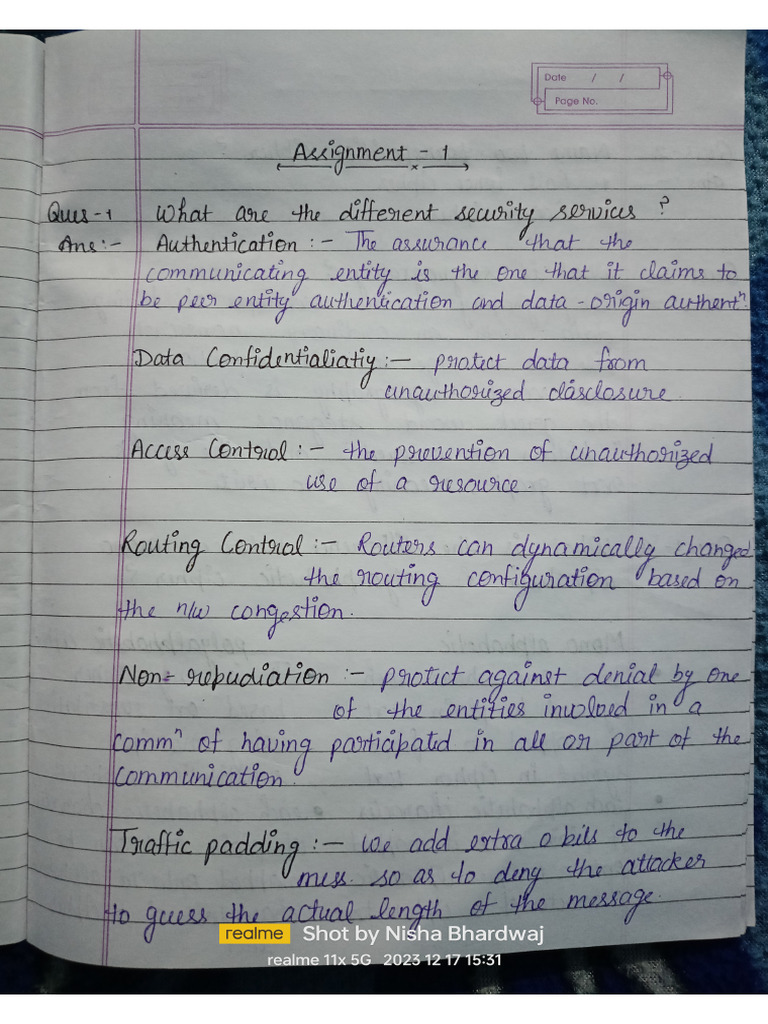 Date / /
Page No.
Assignment - 1
Ques-1 What are the different security services ?
Ans:- Authentication :- The assurance that the
communicating entity is the one that it claims to
be peer entity authentication and data-origin authentⁿ.
Data Confidentialiatiy :- protect data from
unauthorized disclosure.
Access Control :- the prevention of unauthorized
use of a resource.
Routing Control :- Routers can dynamically changed
the routing configuration based on
the n/w congestion.
Non-repudiation :- protect against denial by one
of the entities involved in a
commⁿ of having participated in all or part of the
communication.
Traffic padding :- we add extra 0 bits to the
mess. so as to deny the attacker
to guess the actual length of the message.
realme Shot by Nisha Bhardwaj
realme 11x 5G 2023 12 17 15:31